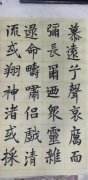 慕遠兮聲哀厲而
彌長爾迺衆靈雜
遝命疇嘯侶戲清
流或翔神渚或採